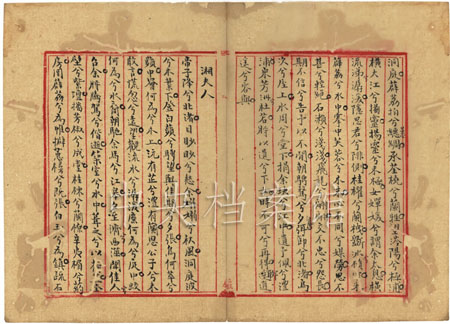 洞庭薜荔拍兮蕙綢承荃橈兮蘭旌望涔陽兮極浦
橫大江兮揚靈揚靈兮未極女嬋媛兮爲余太息橫
流涕兮潺湲隱思君兮陫側桂櫂兮蘭枻斲冰兮積雪采
薜荔兮水中搴芙蓉兮木末心不同兮媒勞恩不
甚兮輕絕石瀨兮淺淺飛龍兮翩翩交不忠兮怨長
期不信兮告予以不閒朝騁騖兮江皋夕弭節兮北渚鳥
次兮屋上水周兮堂下捐余玦兮江中遺余佩兮澧
浦采芳洲兮杜若將以遺兮下女時不可兮再得聊逍
遙兮容與
湘夫人
帝子降兮北渚目眇眇兮愁余嫋嫋兮秋風洞庭波
兮木葉下登白薠兮騁望與佳期兮夕張鳥何萃兮
蘋中罾何爲兮木上沅有芷兮澧有蘭思公子兮未
敢言荒忽兮遠望觀流水兮潺湲麋何爲兮庭中蛟
何爲兮水裔朝馳余馬兮江皋夕濟兮西澨聞佳人
兮召余將騰駕兮偕逝築室兮水中葺之兮以荷蓋荃
壁兮紫壇播芳椒兮成堂桂棟兮蘭橑辛夷楣兮葯
房罔薜荔兮爲帷擗蕙櫋兮既張白玉兮爲鎮疏石
央档案馆